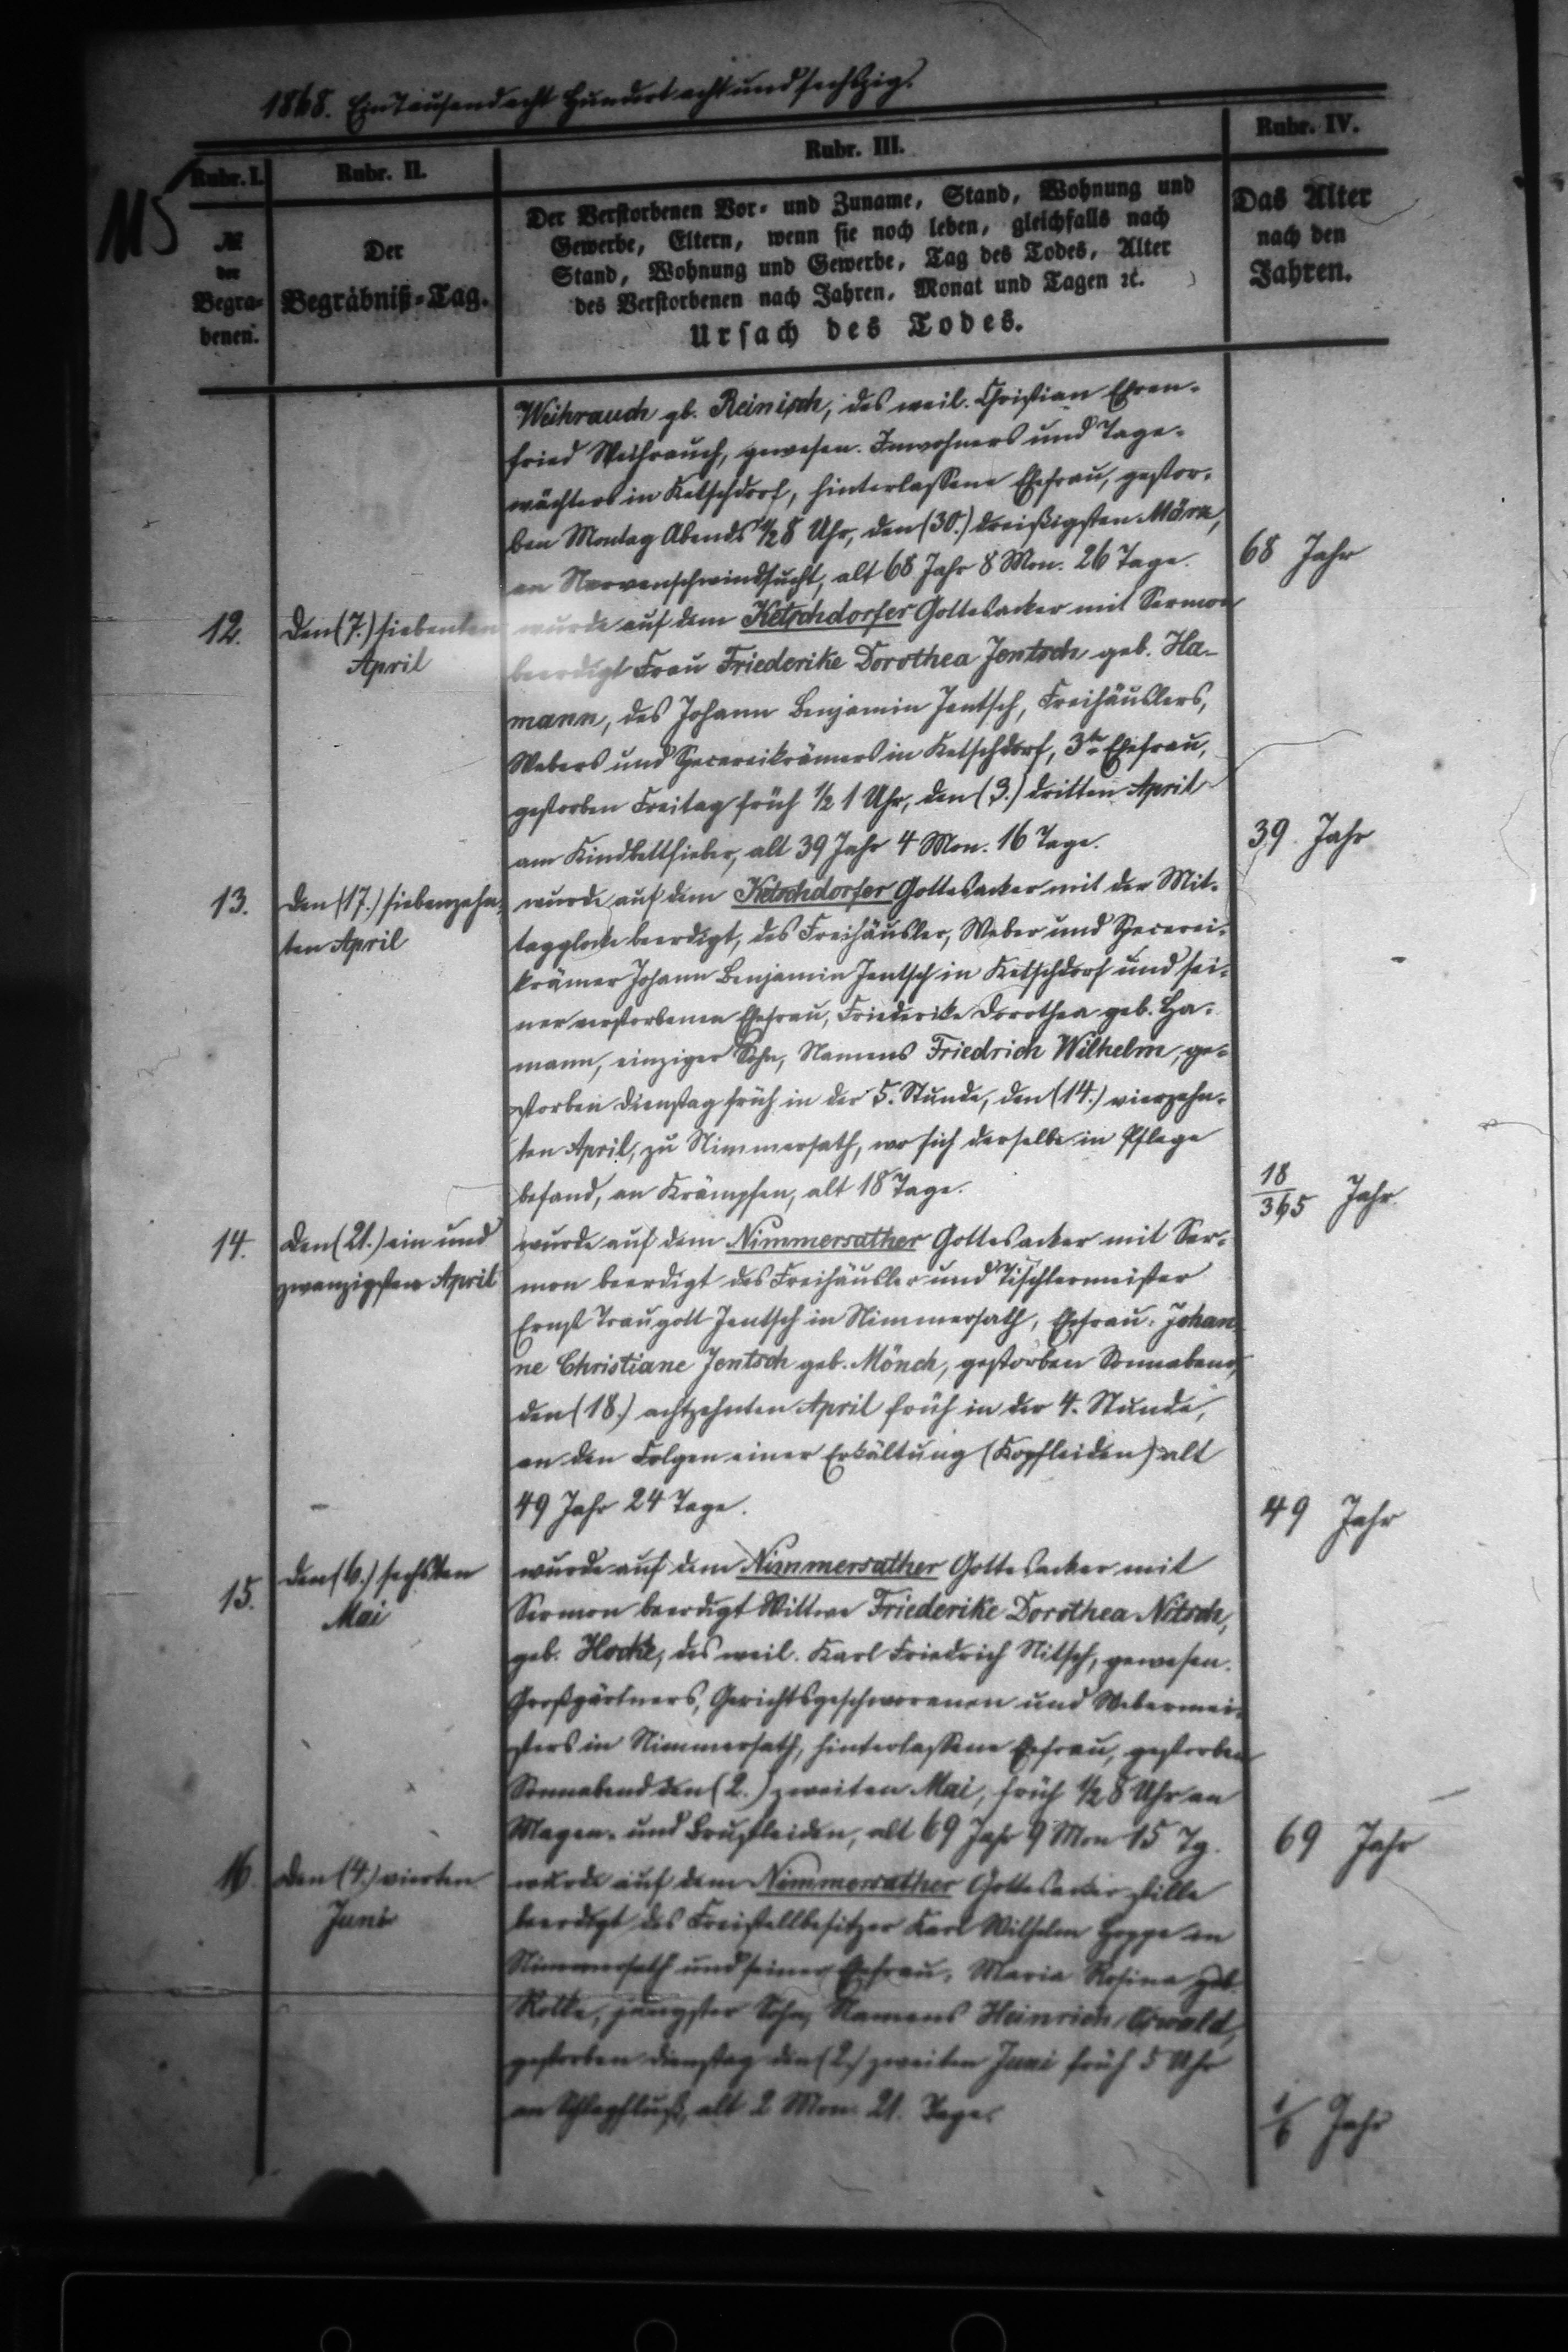 1868. Ein Tausend acht Hundert acht und sechszig.
115
Rubr. I.
Rubr. II.
Rubr. III.
Rubr. IV.
№
der
Begra-
benen.
Der
Begräbniß-Tag.
Der Verstorbenen Vor- und Zuname, Stand, Wohnung und
Gewerbe, Eltern, wenn sie noch leben, gleichfalls nach
Stand, Wohnung und Gewerbe, Tag des Todes, Alter
des Verstorbenen nach Jahren, Monat und Tagen ꝛc.
Ursach des Todes.
Das Alter
nach den
Jahren.
Weihrauch gb. Reinisch, des weil. Christian Ehren-
fried Weihrauch, gewesen. Inwohners und Tage-
wächters in Ketschdorf, hinterlassene Ehefrau, gestor-
ben Montag Abends ½ 8 Uhr, den (30.) dreißigsten März,
an Nervenschwindsucht, alt 68 Jahr 8 Mon. 26 Tage.
68 Jahr
12.
Den (7.) siebenten
April
wurde auf dem Ketschdorfer Gottesacker mit Sermon
beerdigt Frau Friederike Dorothea Jentsch geb. Ha-
mann, des Johann Benjamin Jentsch, Freihäuslers,
Webers und Specereikrämers in Ketschdorf, 3te Ehefrau,
gestorben Freitag früh ½ 1 Uhr, den (3.) dritten April
am Kindbettfieber, alt 39 Jahr 4 Mon. 16 Tage.
39 Jahr
13.
Den (17.) siebenzehn-
ten April
wurde auf dem Ketschdorfer Gottesacker mit der Mit-
tagglocke beerdigt, des Freihäusler, Weber und Specerei-
krämer Johann Benjamin Jentsch in Ketschdorf und sei-
ner verstorbenen Ehefrau, Friederike Dorothea geb. Ha-
mann, einziger Sohn, Namens Friedrich Wilhelm, ge-
storben Dienstag früh in der 5. Stunde, den (14.) vierzehn-
ten April, zu Nimmersath, wo sich derselbe in Pflege
befand, an Krämpfen, alt 18 Tage.
18/365 Jahr.
14.
Den (21.) ein und
zwanzigsten April
wurde auf dem Nimmersather Gottesacker mit Ser-
mon beerdigt des Freihäusler und Tischlermeister
Ernst Traugott Jentsch in Nimmersath, Ehefrau: Johan-
ne Christiane Jentsch geb. Mönch, gestorben Sonnabend,
den (18.) achtzehnten April früh in der 4. Stunde,
an den Folgen einer Erkältung (Kopfleiden) alt
49 Jahr 24 Tage.
49 Jahr
15.
Den (6.) sechsten
Mai
wurde auf dem Nimmersather Gottesacker mit
Sermon beerdigt Wittwe Friederike Dorothea Nitsch,
geb. Hocke, des weil. Karl Friedrich Nitsch, gewesen.
Großgärtners, Gerichtsgeschworenen und Webermei-
sters in Nimmersath, hinterlassene Ehefrau, gestorben
Sonnabend den (2.) zweiten Mai, früh ½ 8 Uhr an
Magen- und Brustleiden, alt 69 Jahr 9 Mon 15 Tg.
69 Jahr
16.
Den (4.) vierten
Juni
wurde auf dem Nimmersather Gottesacker stille
beerdigt des Freistellbesitzer Karl Wilhelm Hoppe in
Nimmersath und seiner Ehefrau, Maria Rosina geb.
jüngster Sohn, Namens Heinrich Oswald,
gestorben Dienstag den (2.) zweiten Juni früh 5 Uhr
an Schlagfluß, alt 2 Mon. 21. Tage.
1/6 Jahr